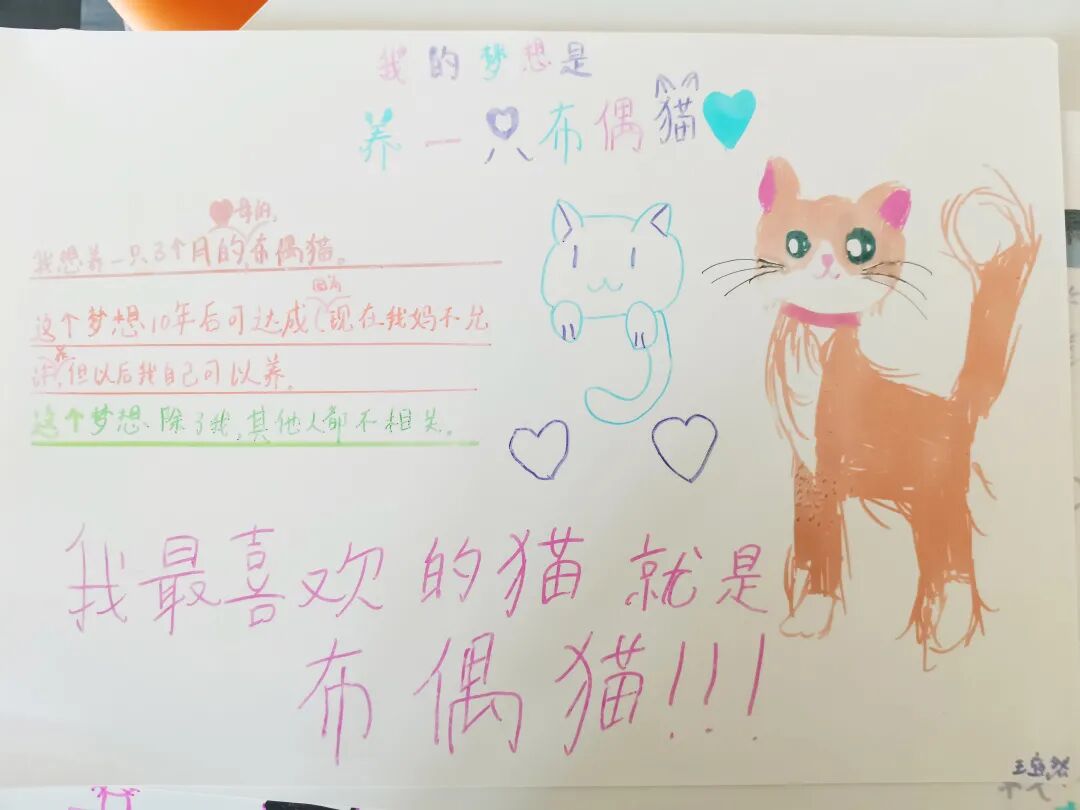 我的梦想是
养一只布偶猫
母的,
我想养一只3个月的,布偶猫。
因为
这个梦想10年后可达成(现在我妈不允
许养,但以后我自己可以养。
这个梦想,除了我,其他人都不相关。
我最喜欢的猫就是
布偶猫!!!